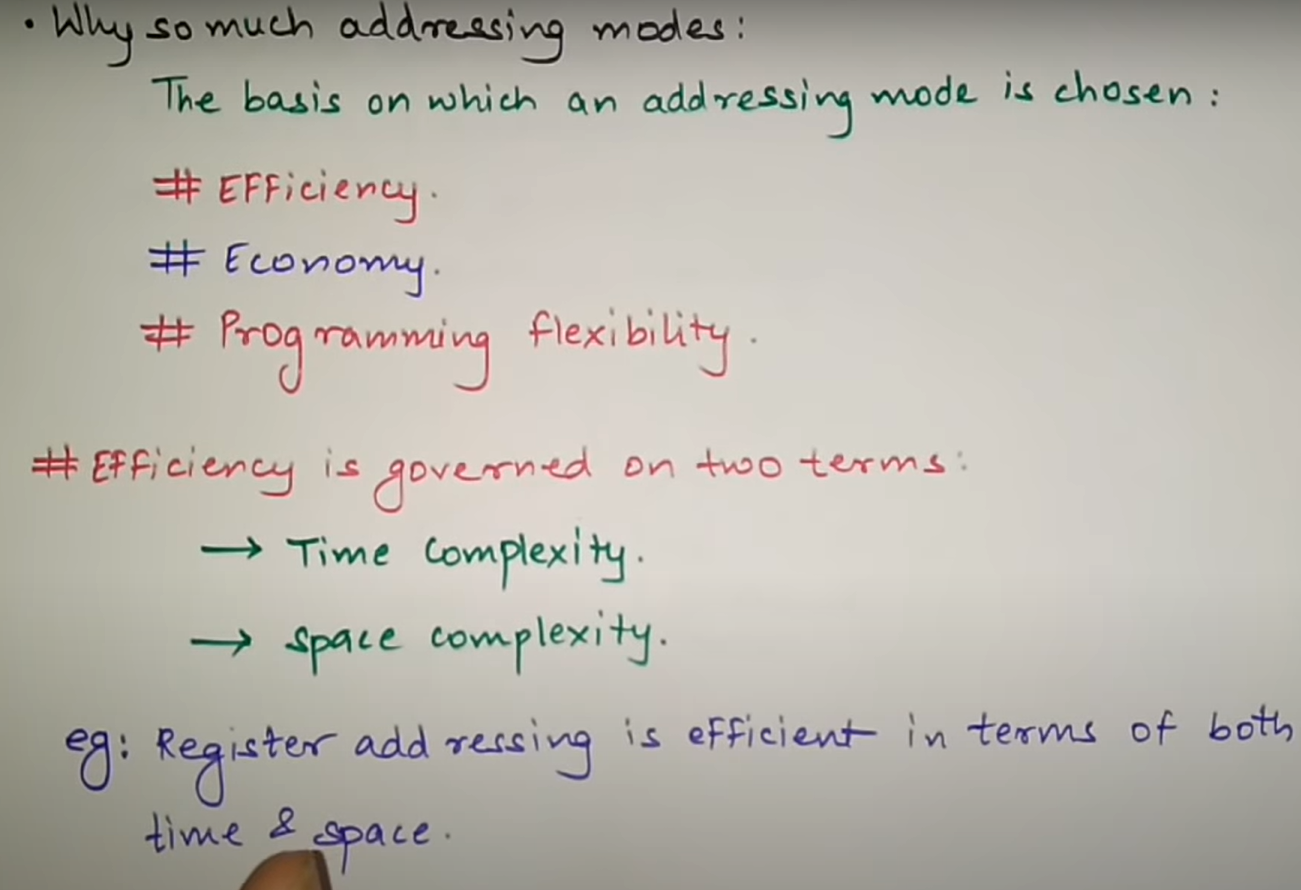 • Why so much addressing modes:
The basis on which an addressing mode is chosen:
# Efficiency.
# Economy.
# Programming flexibility.
# Efficiency is governed on two terms:
→ Time complexity.
→ space complexity.
eg: Register addressing is efficient in terms of both
time & space.